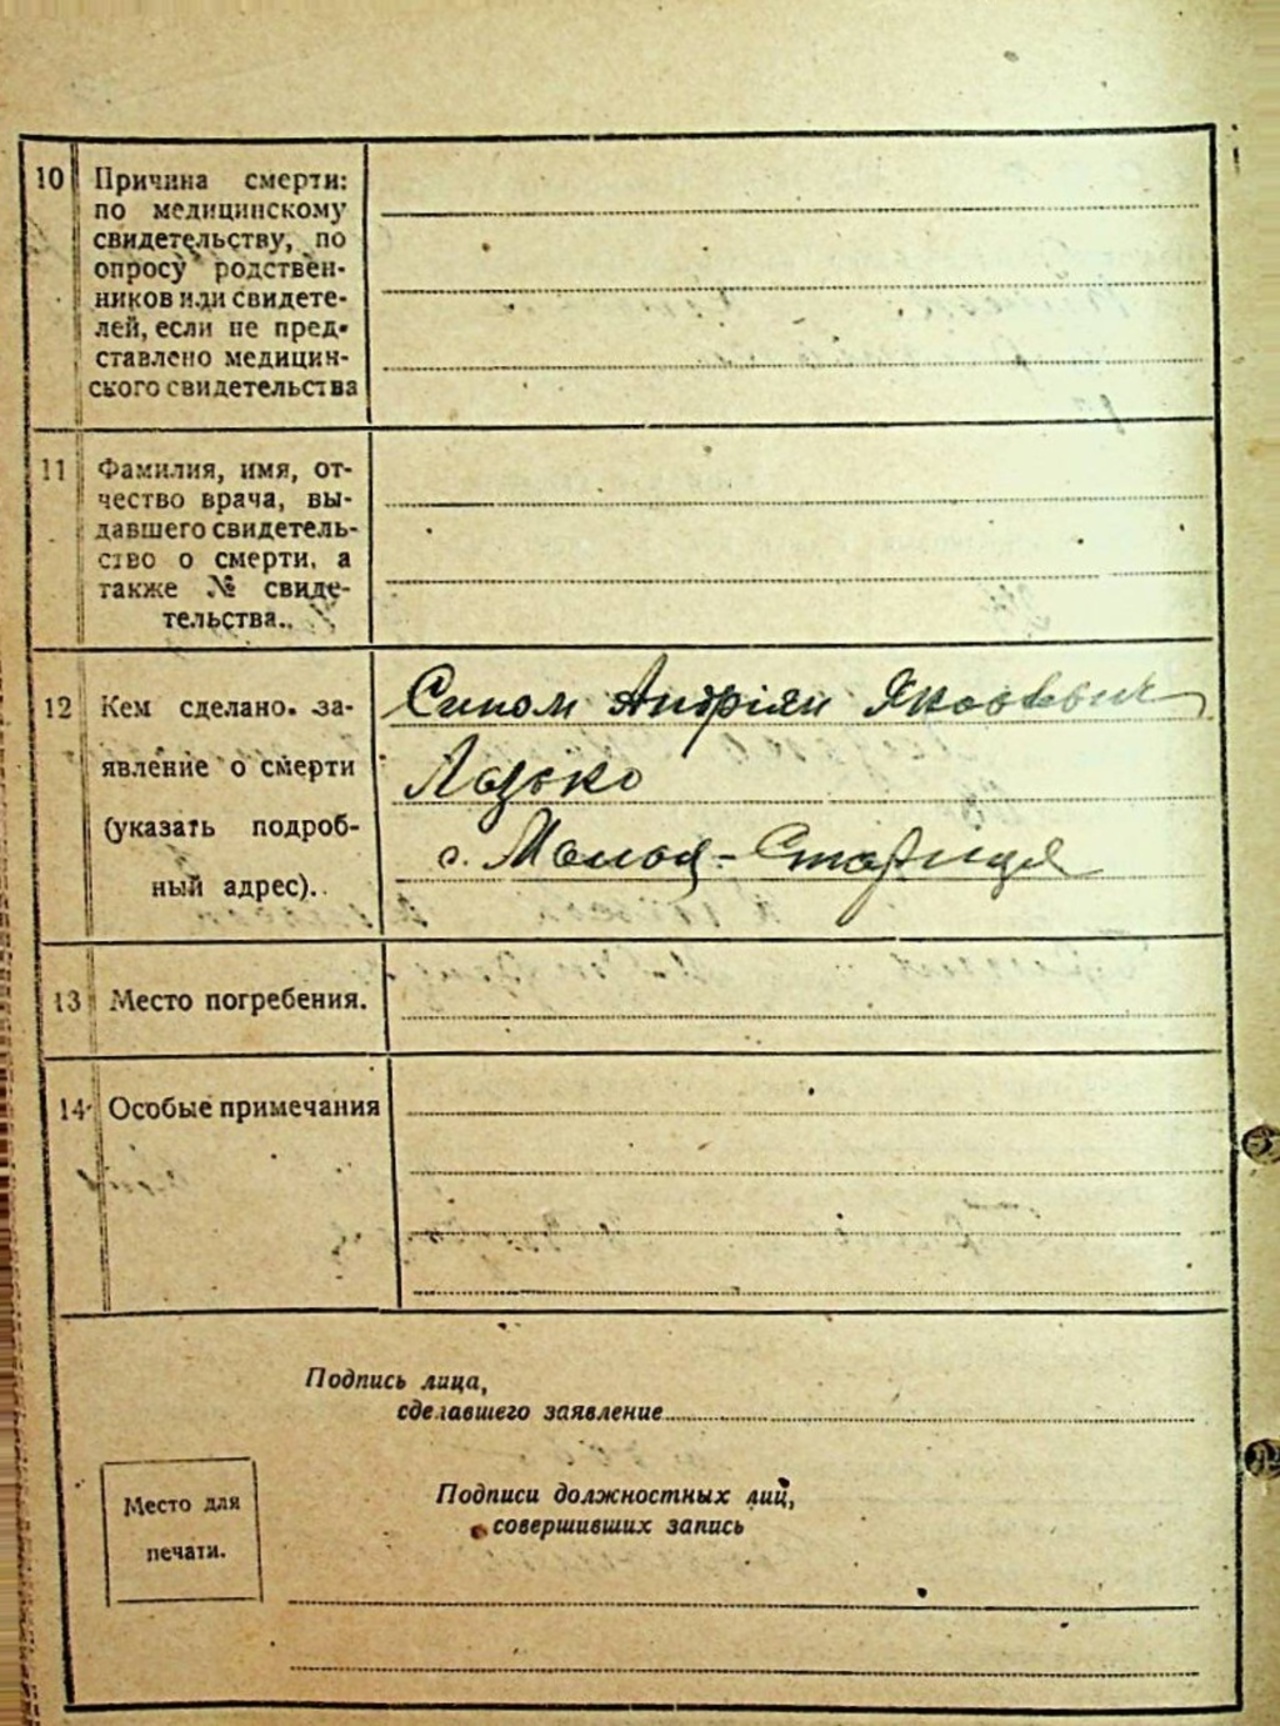 10 Причина смерти:
по медицинскому
свидетельству, по
опросу родствен-
ников или свидете-
лей, если не пред-
ставлено медицин-
ского свидетельства
11 Фамилия, имя, от-
чество врача, вы-
давшего свидетель-
ство о смерти, а
также № свиде-
тельства..
12 Кем сделано. за-
явление о смерти
(указать подроб-
ный адрес)..
Сином Андріян Якововыч
Лазько
с. Малая-Старица
13 Место погребения.
14 Особые примечания
Подпись лица,
сделавшего заявление
Место для
печати.
Подписи должностных лиц,
совершивших запись